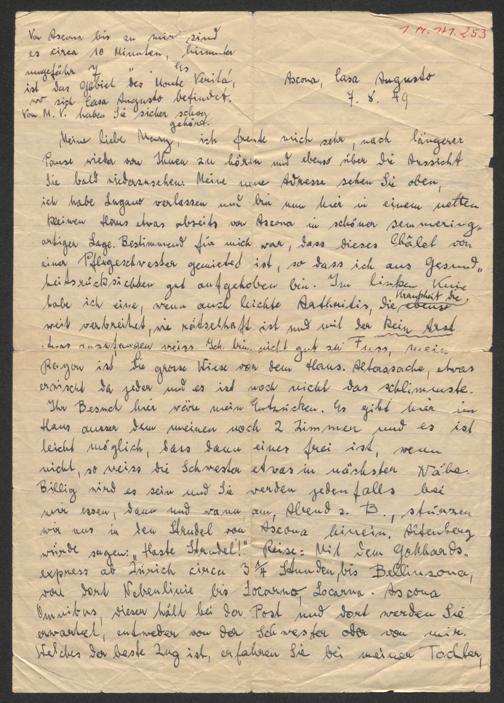 Von Ascona bis zu mir sind
es circa 10 Minuten, hinunter
ungefähr 7 " . Es
ist das Gebiet des Monte Verità,
wo sich Casa Augusto befindet.
Von M. V. haben Sie sicher schon
gehört.
1.M.171.253
Ascona, Casa Augusto
7. 8. 49
Meine liebe ich freute mich sehr, nach längerer
Pause wieder von Ihnen zu hören und ebenso über die Aussicht
Sie bald wiederzusehen. Meine neue Adresse sehen Sie oben,
ich habe Lugano verlassen und bin nun hier in einem netten
kleinen Haus etwas abseits von Ascona in schöner semmering-
artiger Lage. Bestimmend für mich war, dass dieses Châlet von
einer Pflegeschwester gemietet ist, so dass ich aus Gesund-
heitsrücksichten gut aufgehoben bin. Im linken Knie
habe ich eine, wenn auch leichte Arthritis, die ebenso
Krankheit die
weit verbreitet, wie rätselhaft ist und mit der kein Arzt
etwas anzufangen weiss. Ich bin nicht gut zu Fuss, mein
Rayon ist die grosse Wiese vor dem Haus. Alterssache, etwas
erwischt da jeder und es ist noch nicht das schlimmste.
Ihr Besuch hier wäre mein Entzücken. Es gibt hier im
Haus ausser dem meinen noch 2 Zimmer und es ist
leicht möglich, dass dann eines frei ist, wenn
nicht, so weiss die Schwester etwas in nächster Nähe.
Billig wird es sein und Sie werden jedenfalls bei
mir essen, dann und wann am Abend z. B., stürzen
wir uns in den Strudel von Ascona hinein, Altenberg
würde sagen: „Haste Strudel!" Reise: Mit dem Gotthards-
express ab Zürich circa 3 3/4 Stunden bis Bellinzona,
von dort Nebenlinie bis Locarno, Locarno - Ascona
Omnibus, dieser hält bei der Post und dort werden Sie
erwartet, entweder von der Schwester oder von mir.
Welches der beste Zug ist, erfahren Sie bei meiner Tochter,